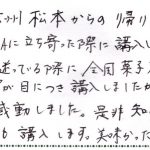 信州 松本からの帰り
Aに立ち寄った際に購入し
迷っている際に全国菓子
が目につき購入しましたが
感動しました。是非 知
も購入します。美味かった